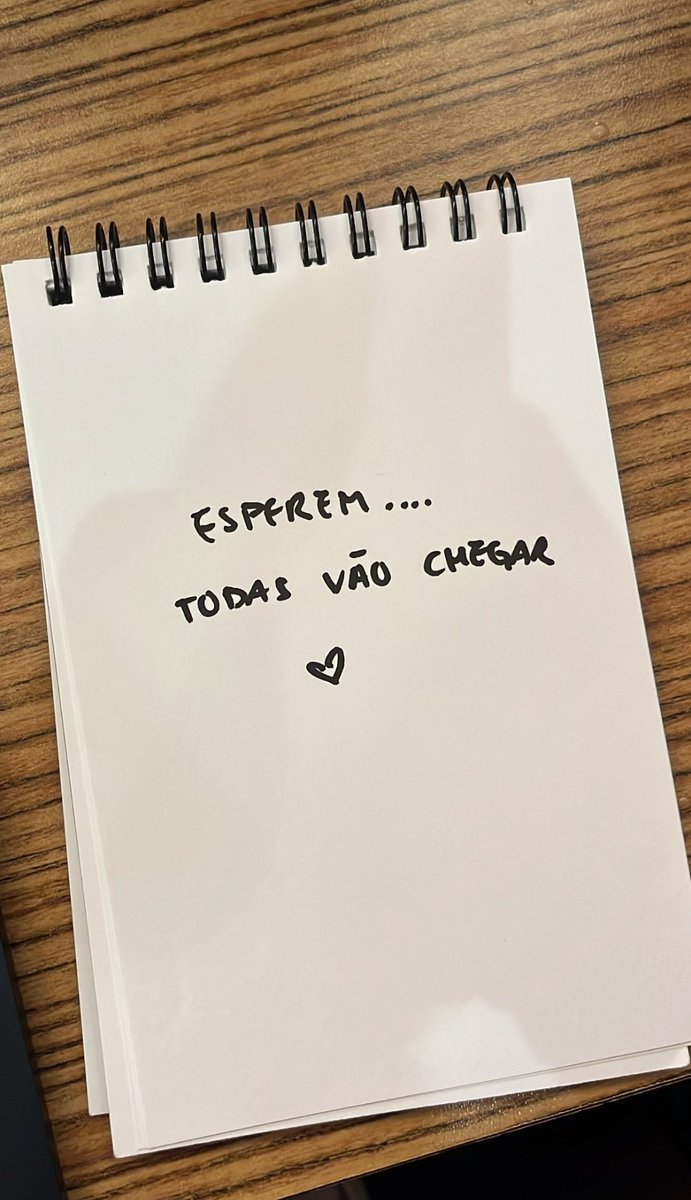 ESPEREM....
TODAS VÃO CHEGAR